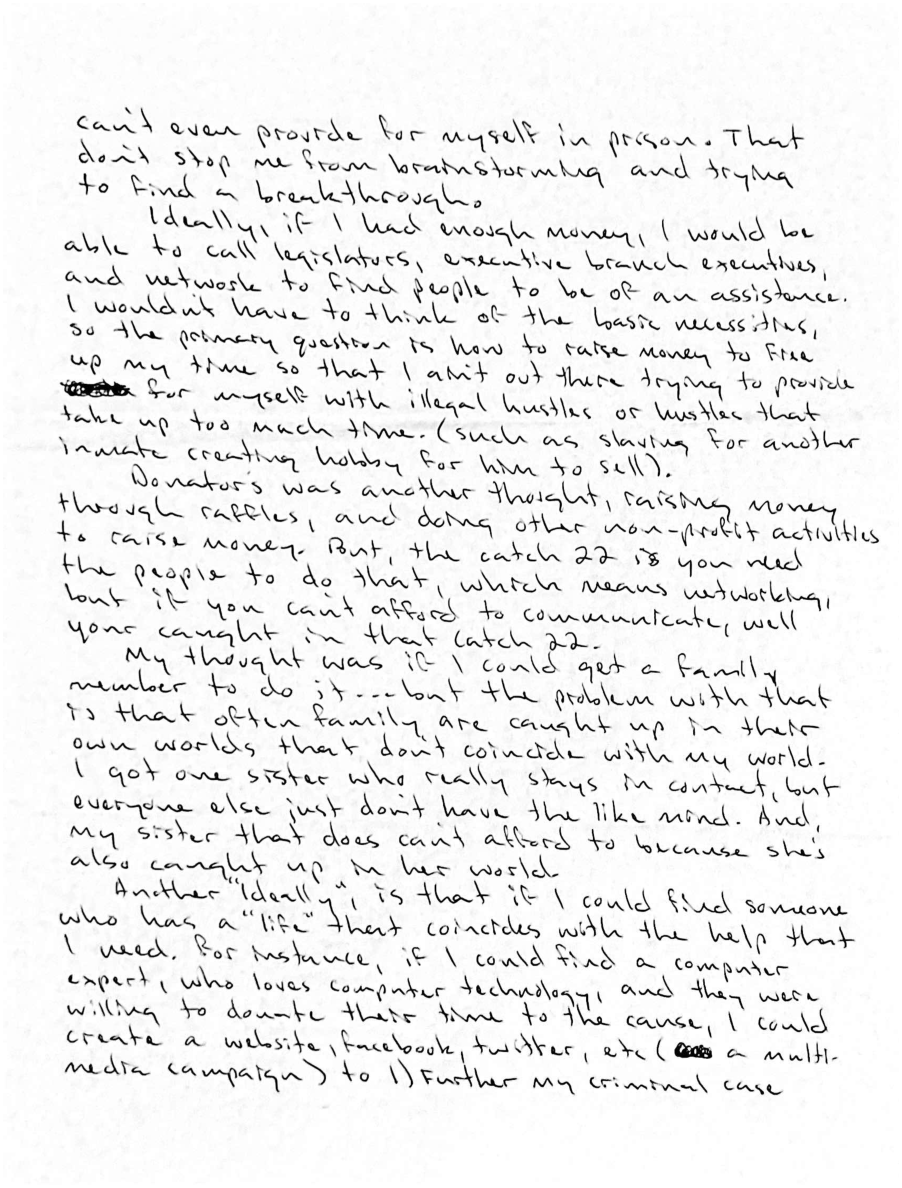 can't even provide for myself in prison. That
don't stop me from brainstorming and trying
to find a breakthrough.
Ideally, if I had enough money, I would be
able to call legislators, executive branch executives,
and network to find people to be of an assistance.
I wouldn't have to think of the basic necessities,
so the primary question is how to raise money to free
up my time so that I ain't out there trying to provide
for myself with illegal hustles or hustles that
take up too much time. (such as slaving for another
inmate creating hobby for him to sell).
Donator's was another thought, raising money
through raffles, and doing other non-profit activities
to raise money. But, the catch 22 is you need
the people to do that, which means networking,
but if you can't afford to communicate, well
your caught in that catch 22.
My thought was if I could get a family
member to do it...but the problem with that
is that often family are caught up in their
own worlds that don't coincide with my world.
I got one sister who really stays in contact, but
everyone else just don't have the like mind. And,
my sister that does can't afford to because she's
also caught up in her world.
Another "Ideally", is that if I could find someone
who has a "life" that coincides with the help that
I need. For instance, if I could find a computer
expert, who loves computer technology, and they were
willing to donate their time to the cause, I could
create a website, facebook, twitter, etc ( a multi-
media campaign) to 1) Further my criminal case